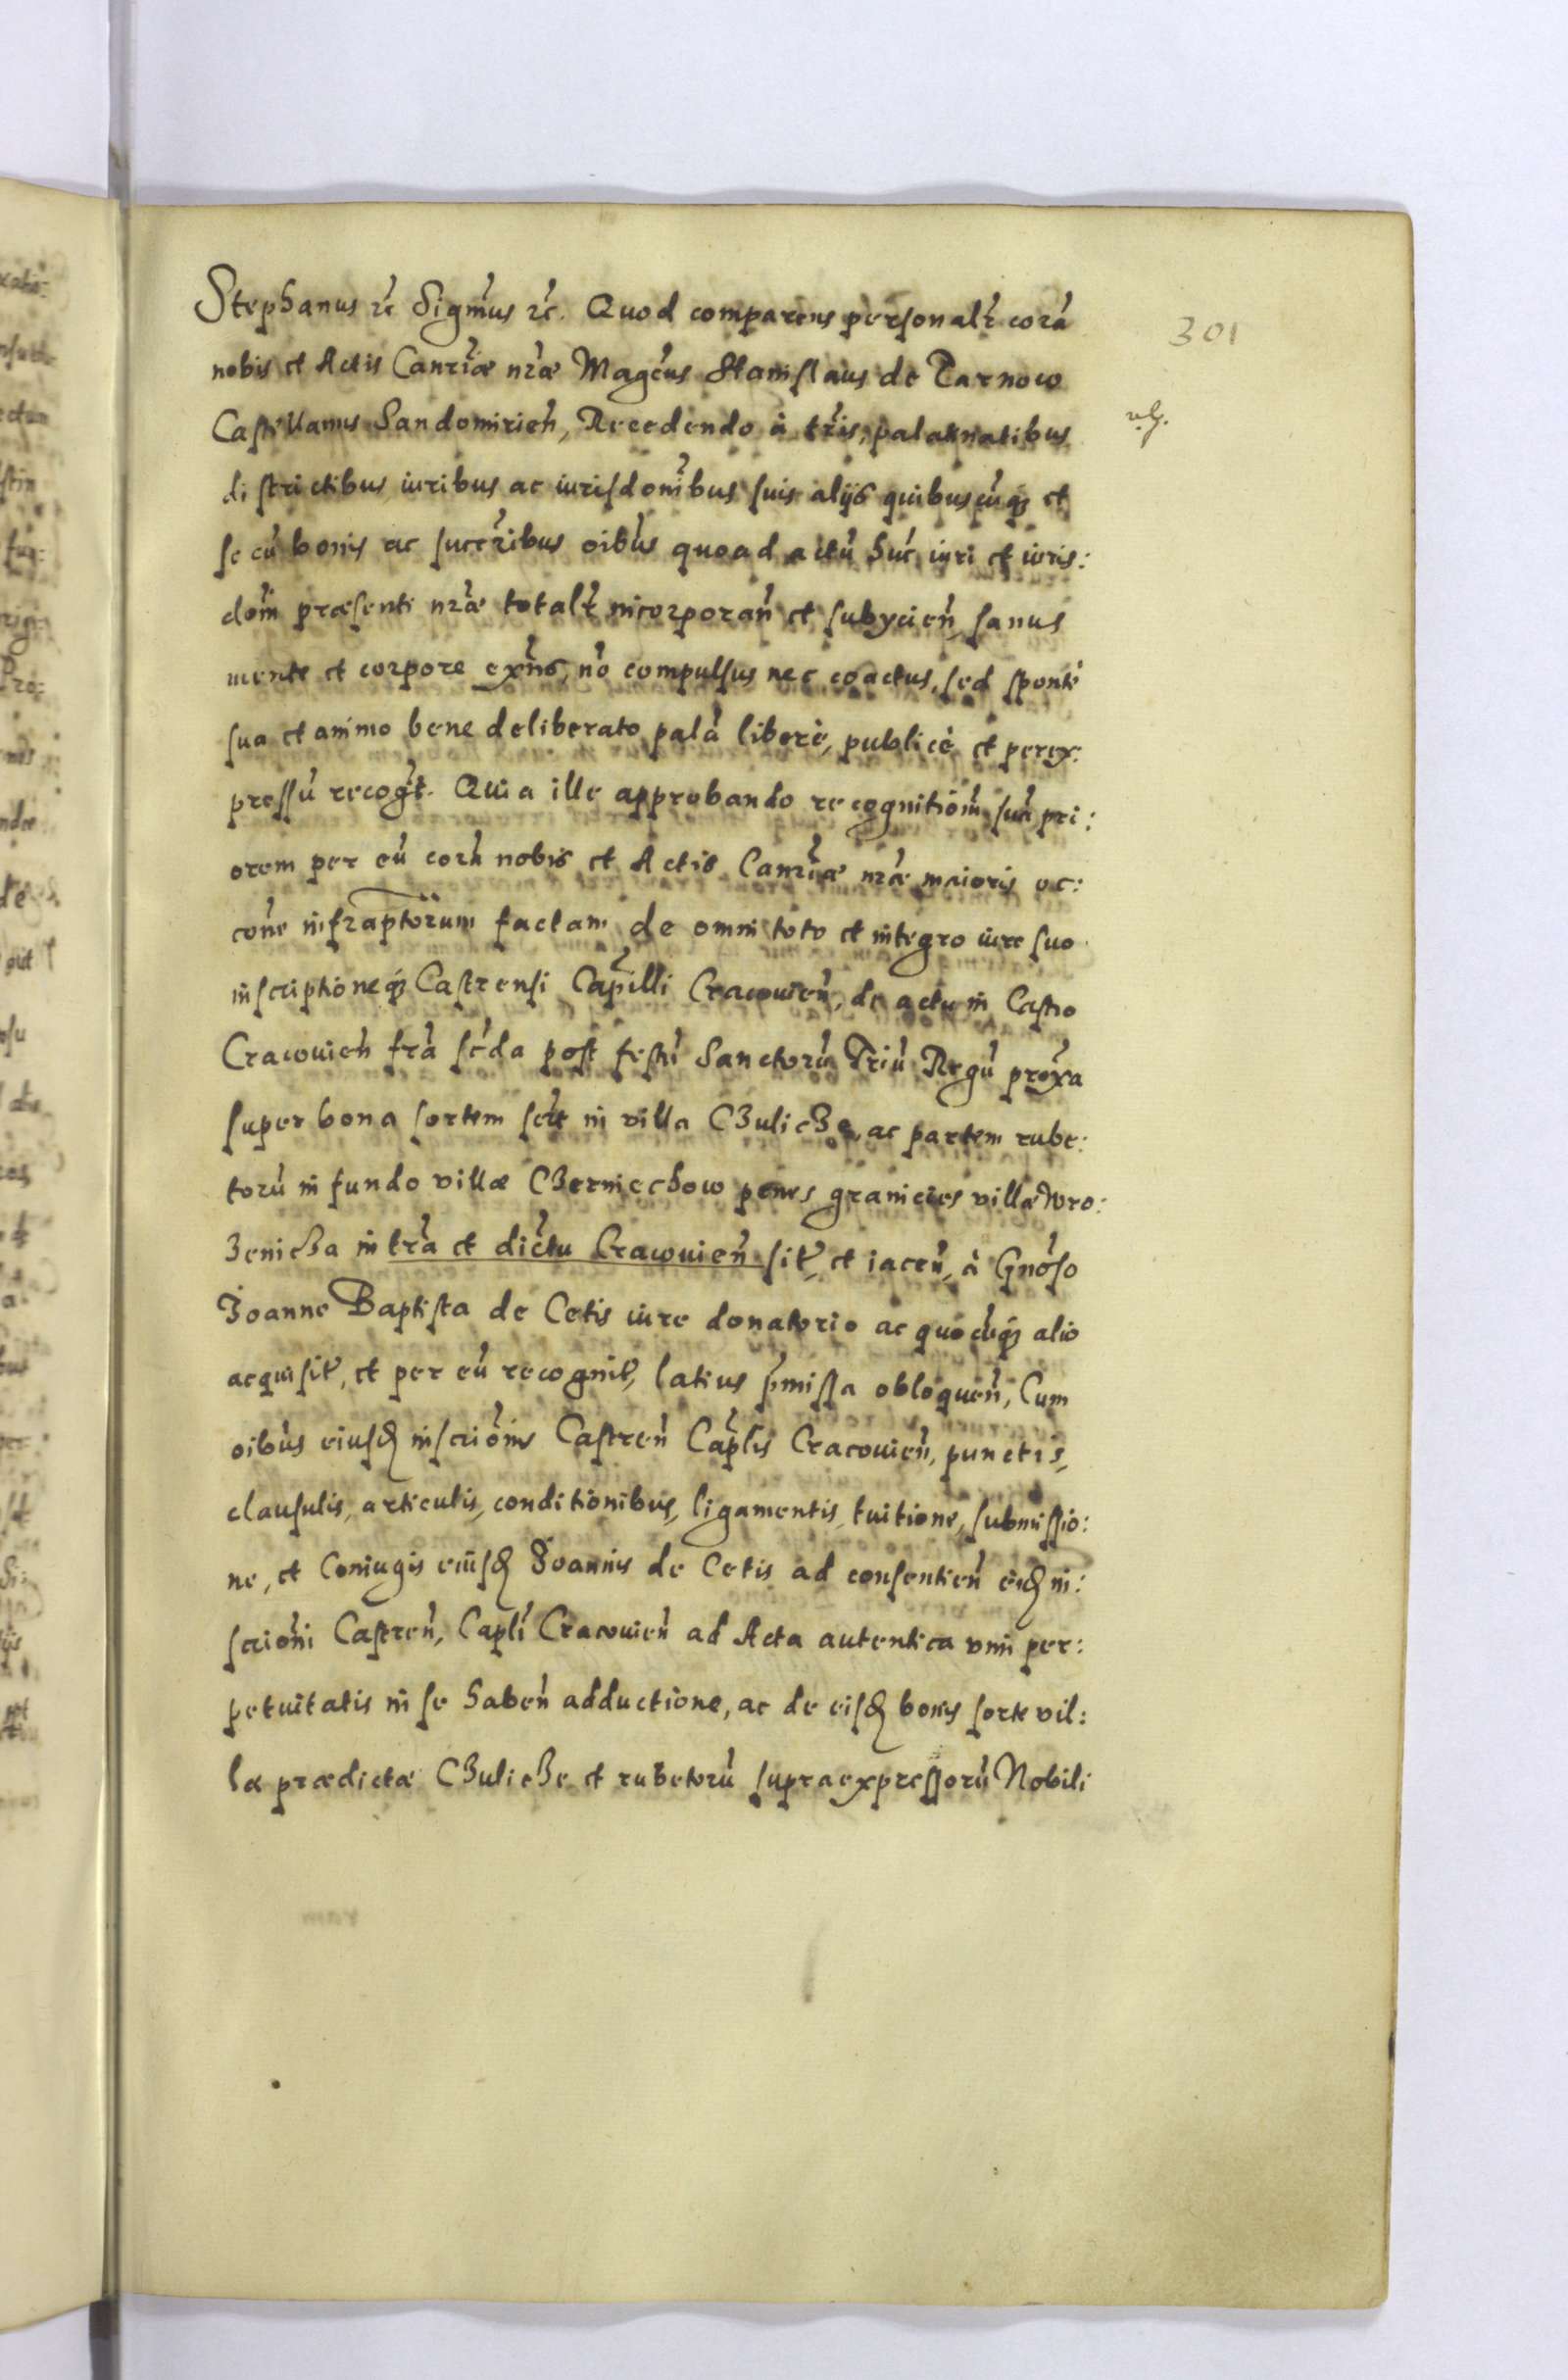 Stephanus rc̃ Sigm̃us rc̃. Quod comparens personalr̃ corã
301
nobis et Actis Canr̃iæ nr̃æ Magc̃us Stanislaus de Tarnow
Castellanus Sandomirieñ, Recedendo à tr̃is, palatinatibus
districtibus iuribus ac iurisdom̃bus suis alijs quibuscũq3 et
se cũ bonis ac succr̃ibus oĩbus quoad actũ hũc iuri et iuris:
dom̃ præsenti nr̃æ totalr̃ incorporañ et subycieñ, sanus
mente et corpore exñs, nõ compulsus nec coactus, sed sponte
sua et animo bene deliberato palã liberè, publicè et perex:
pressũ recogt̃. Quia ille approbando recognitiõm suã pri:
orem per eũ corã nobis et Actis Canr̃iæ nr̃æ maioris oc:
cõne infraptõrum factam de omni toto et integro iure suo
inscriptioneq3 Castrensi Capĩlli Cracovieñ, de actu in Castro
Cracovieñ fr̃ia sc̃da post festũ Sanctorũ Triũ Regũ prox̃a
super bona sortem sct̃ in villa Chuliche, ac partem rube:
torũ in fundo villæ Cherniechow penes granicies villæ Wro:
zenicha in tr̃a et dic̃tu Cracovieñ sit̃, et iaceñ, à Gnõso
Joanne Baptista de Cetis iure donatorio ac quocũq3 alio
acquisit̃, et per eũ recognit̃, latius p̃missa obloqueñ, Cum
oĩbus eiusd̃ inscriõnis Castreñ Caplĩs Cracovieñ, punctis,
clausulis, articulis, conditionibus, ligamentis, tuitione, submissio:
ne, et Coniugis eiusd̃ Joannis de Cetis ad consentieñ eid̃ in:
scriõni Castreñ, Caplĩ Cracovieñ ad Acta autentica vim per:
petuitatis in se habeñ adductione, ac de eisd̃ bonis sorte vil:
læ prædictæ Chuliche et rubetorũ supraexpressorũ Nobili